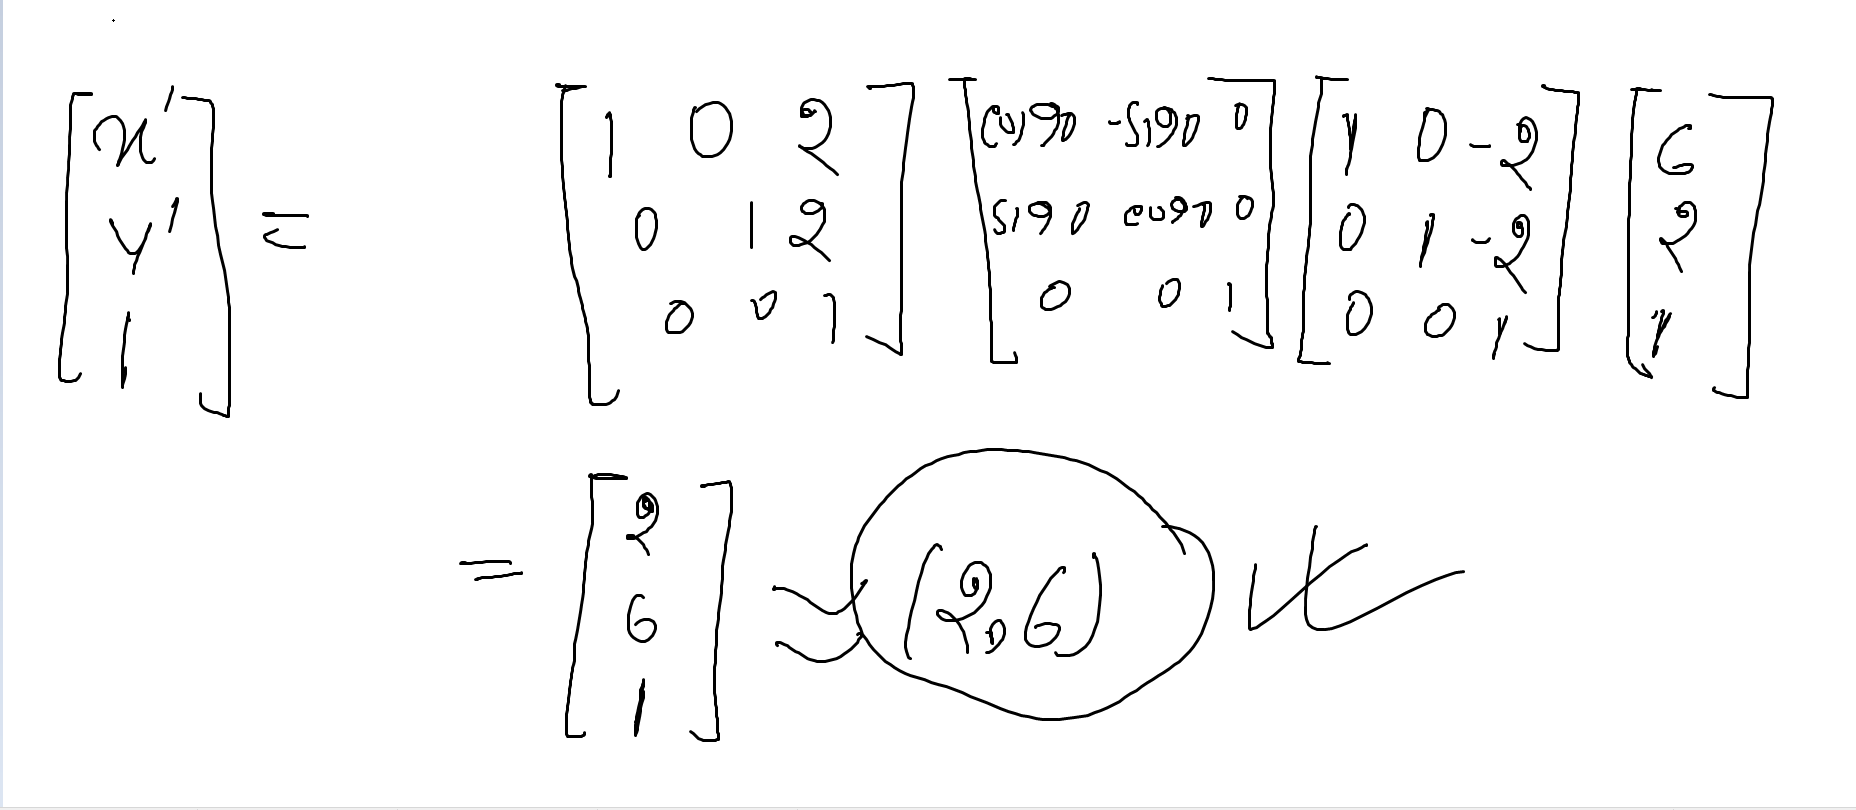 [x' y' 1] = [1 0 2; 0 1 2; 0 0 1] [cos90 -si90 0; si90 cos90 0; 0 0 1] [1 0 -2; 0 1 -2; 0 0 1] [6 2 1]
= [2 6 1] ≈ (2,6)